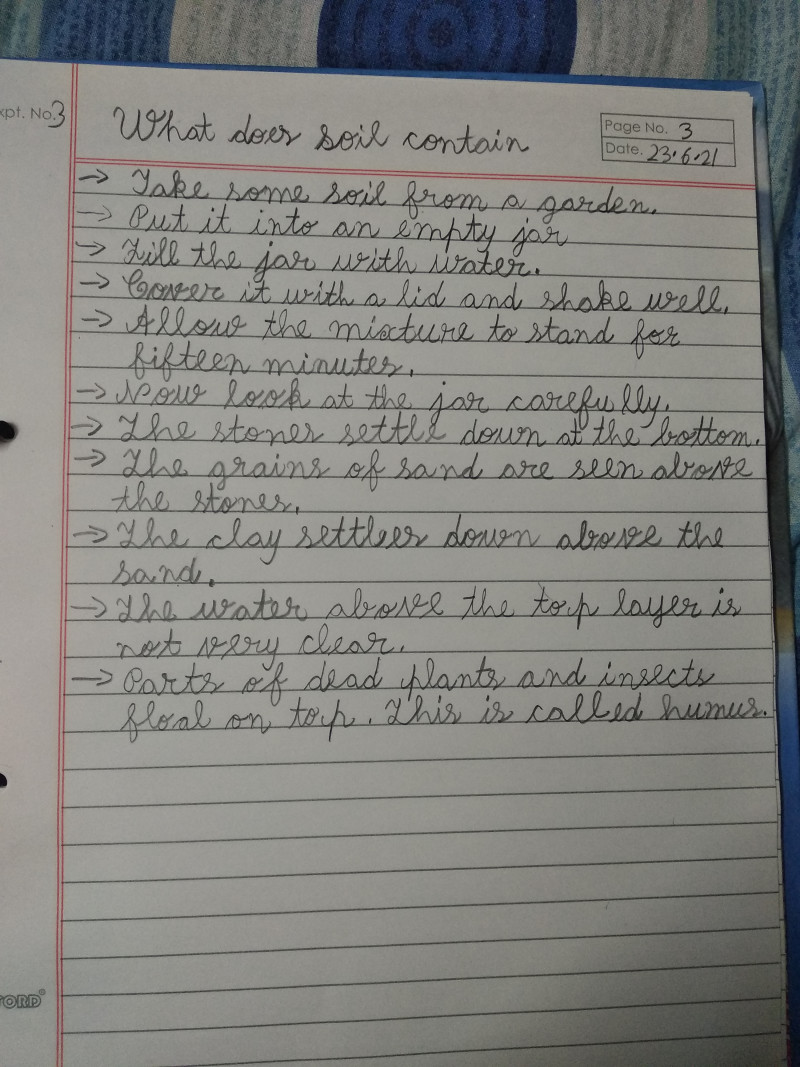 xpt. No. 3
What does soil contain
Page No. 3
Date. 23.6.21
→ Take some soil from a garden.
→ Put it into an empty jar
→ Fill the jar with water.
→ Cover it with a lid and shake well.
→ Allow the mixture to stand for
fifteen minutes.
→ Now look at the jar carefully.
→ The stones settle down at the bottom.
→ The grains of sand are seen above
the stones.
→ The clay settles down above the
sand.
→ The water above the top layer is
not very clear.
→ Parts of dead plants and insects
floal on top. This is called humus.
FORD